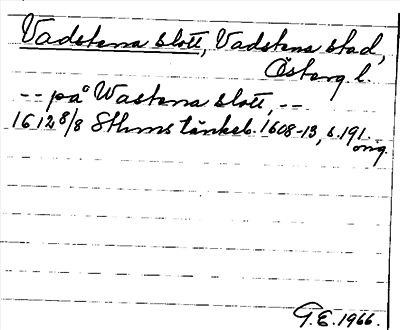 Vadstena slott, Vadstena stad,
Österg. l.
-- på Wastena slott, --
1612 8/8 Sthms tänkeb. 1608-13, s. 191.
orig.
G.E. 1966.